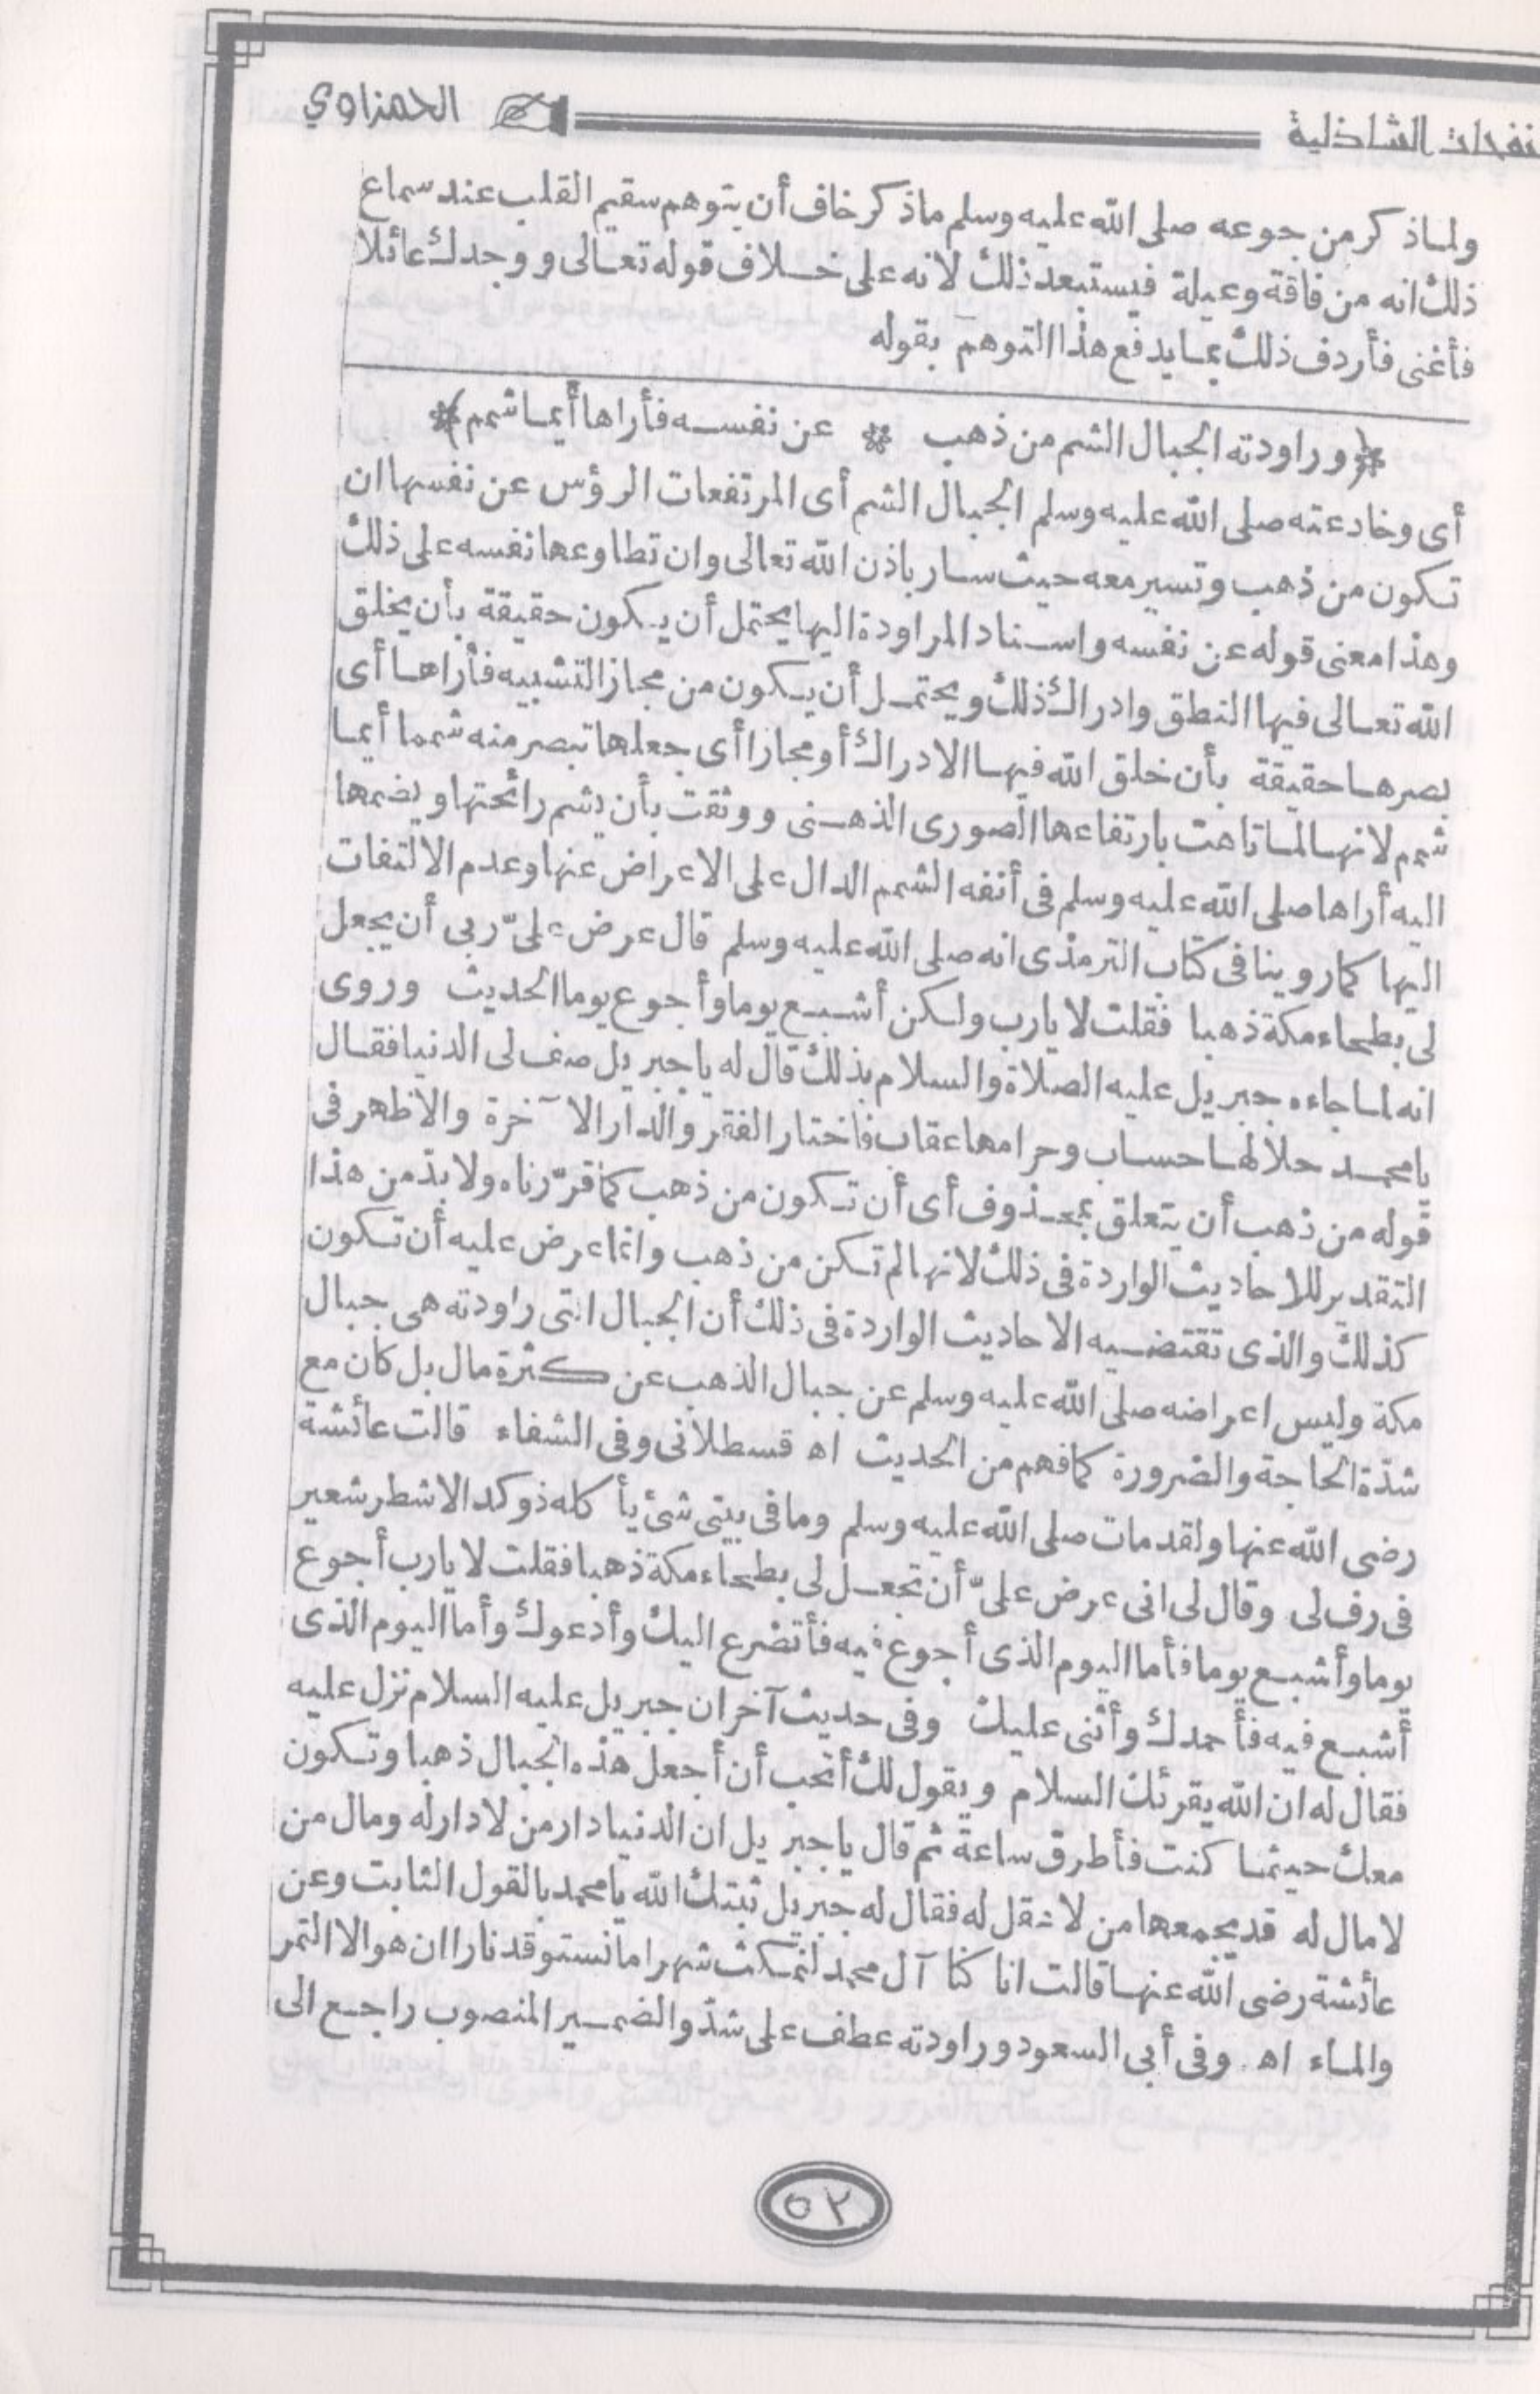 نفحات الشاذلية الحمزاوي
ولما ذكر من جوعه صلى الله عليه وسلم ما ذكر خاف أن يتوهم سقيم القلب عند سماع
ذلك انه من فاقة وعيلة فيستبعد ذلك لانه على خلاف قوله تعالى ووجدك عائلا
فأغنى فأردف ذلك بما يدفع هذا التوهم بقوله
﴿وراودته الجبال الشم من ذهب * عن نفسه فأراها أيما شمم﴾
أى وخادعته صلى الله عليه وسلم الجبال الشم أى المرتفعات الرؤس عن نفسها ان
تكون من ذهب وتسير معه حيث سار باذن الله تعالى وان تطاوعها نفسه على ذلك
وهذا معنى قوله عن نفسه واسناد المراودة اليها يحتمل أن يكون حقيقة بأن يخلق
الله تعالى فيها النطق وادراك ذلك ويحتمل أن يكون من مجاز التشبيه فأراها أى
بصرها حقيقة بأن خلق الله فيها الادراك أو مجازا أى جعلها تبصر منه شمما أيما
شمم لانها لما تاهت بارتفاعها الصورى الذهنى ووثقت بأن يشم رائحتها ويضمها
اليه أراها صلى الله عليه وسلم فى أنفه الشمم الدال على الاعراض عنها وعدم الالتفات
اليها كما روينا فى كتاب الترمذى انه صلى الله عليه وسلم قال عرض علىّ ربى أن يجعل
لى بطحاء مكة ذهبا فقلت لا يارب ولكن أشبع يوما وأجوع يوما الحديث وروى
انه لما جاءه جبريل عليه الصلاة والسلام بذلك قال له يا جبريل صف لى الدنيا فقال
يا محمد حلالها حساب وحرامها عقاب فاختار الفقر والدار الآخرة والاظهر فى
قوله من ذهب أن يتعلق بمحذوف أى أن تكون من ذهب كما قرّرناه ولا بدّ من هذا
التقدير للاحاديث الواردة فى ذلك لانها لم تكن من ذهب وانما عرض عليه أن تكون
كذلك والذى تقتضيه الاحاديث الواردة فى ذلك أن الجبال التى راودته هى جبال
مكة وليس اعراضه صلى الله عليه وسلم عن جبال الذهب عن كثرة مال بل كان مع
شدّة الحاجة والضرورة كما فهم من الحديث اه قسطلانى وفى الشفاء قالت عائشة
رضى الله عنها ولقد مات صلى الله عليه وسلم وما فى بيتى شئ يأكله ذو كبد الا شطر شعير
فى رف لى وقال لى انى عرض علىّ أن تجعل لى بطحاء مكة ذهبا فقلت لا يارب أجوع
يوما وأشبع يوما فأما اليوم الذى أجوع فيه فأتضرع اليك وأدعوك وأما اليوم الذى
أشبع فيه فأحمدك وأثنى عليك وفى حديث آخر ان جبريل عليه السلام نزل عليه
فقال له ان الله يقرئك السلام ويقول لك أتحب أن أجعل هذه الجبال ذهبا وتكون
معك حيثما كنت فأطرق ساعة ثم قال يا جبريل ان الدنيا دار من لا دار له ومال من
لا مال له قد يجمعها من لا عقل له فقال له جبريل ثبتك الله يا محمد بالقول الثابت وعن
عائشة رضى الله عنها قالت انا كنا آل محمد لنمكث شهرا ما نستوقد نارا ان هو الا التمر
والماء اه وفى أبى السعود وراودته عطف على شدّ والضمير المنصوب راجع الى
٥٢